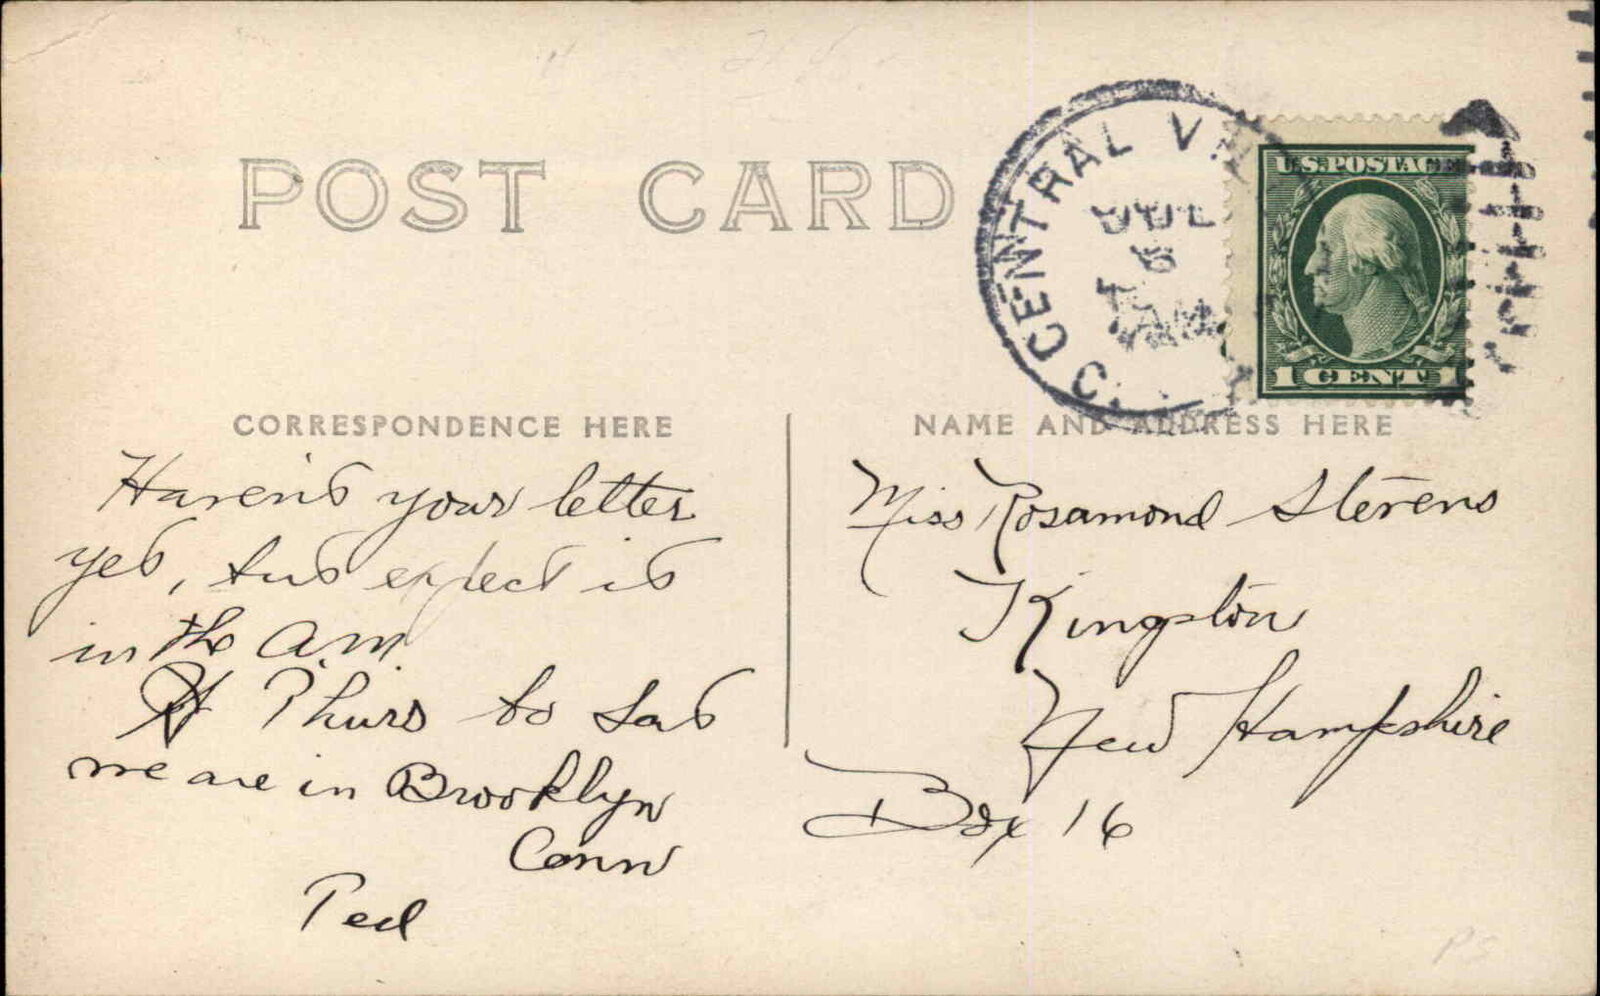 POST CARD
CENTRAL V
JUL
6
AM
C
U.S.POSTAGE
1 CENT 1
CORRESPONDENCE HERE
Haven't your letter
yet, but expect it
in the a.m.
Thurs to Sat
we are in Brooklyn
Conn
Ted
NAME AND ADDRESS HERE
Miss Rosamond Stevens
Kingston
New Hampshire
Box 16
PS